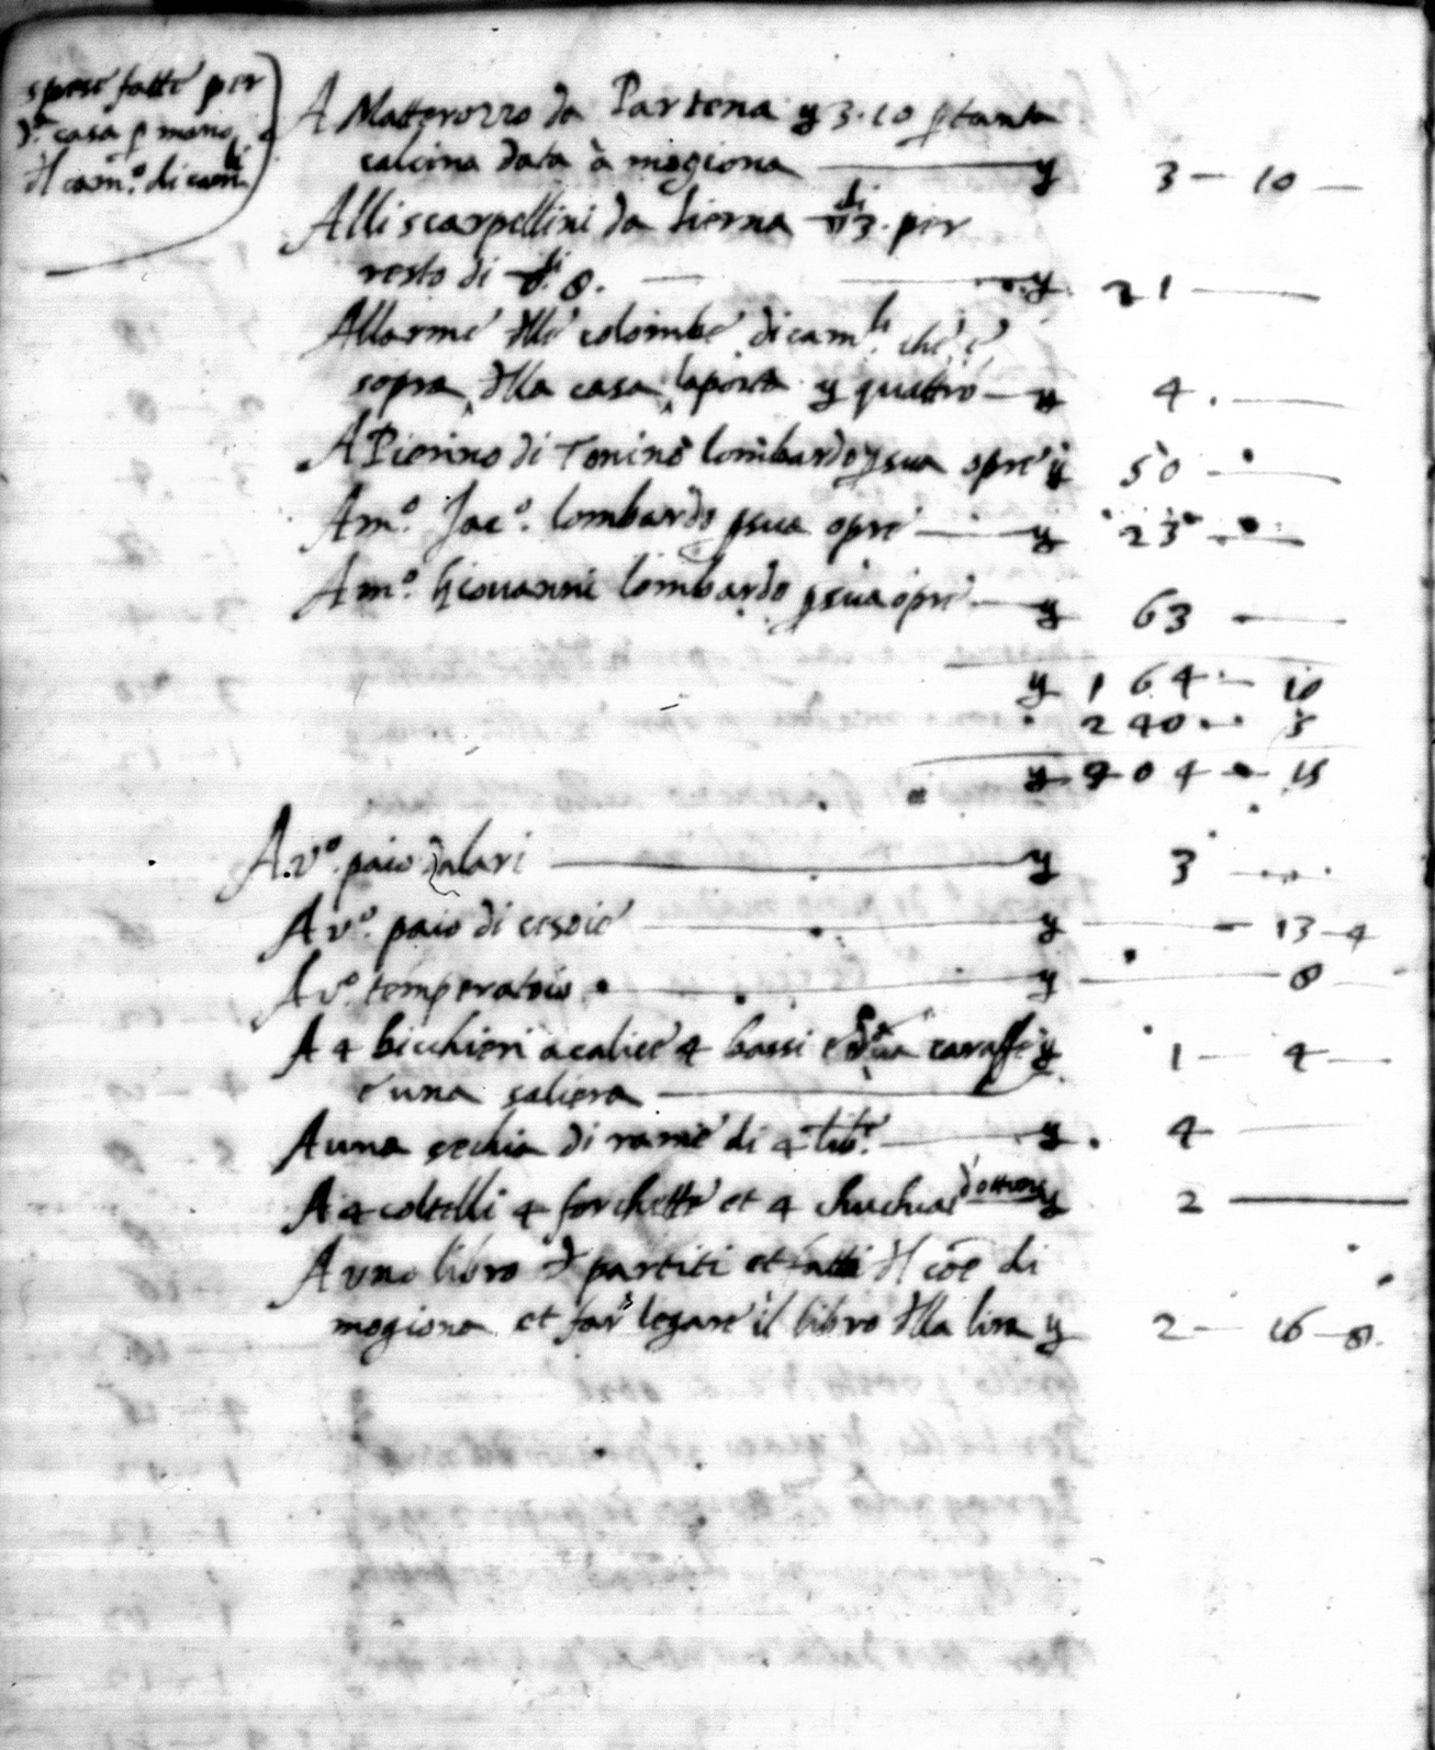 spese fatte per
d.ᵃ casa p mano
dl cam.º di cam.ˡⁱ
A Matterozzo da Partena y 3.10 p tanta
calcina data à mogiona — y 3 — 10 —
Alli scarpellini da Sierna 3. per
resto di 8. — y 21 —
All arme dlle colombe di cam.ˡⁱ che è
sopra dlla casa laporta y quattro — y 4. —
A Pierino di Tonino lombardo p sua opre y 50 —
A m.º Jac.º lombardo p sua opre — y 23 —
A m.º Giouanni lombardo p sua opre — y 63 —
y 164 — 10
240 — 5
y 404 — 15
A v.º paio dalari — y 3 —
A v.º paio di cesoie — y — 13 — 4
A v.º temperatoio — y — 8 —
A 4 bicchieri a calice 4 bassi e dua caraffe y 1 — 4 —
e una saliera —
A una sechia di rame di 4 lib.ᵉ — y 4 —
A 4 coltelli 4 forchette et 4 chuchiai d'ottone y 2 —
A uno libro d partiti et fatti dl cōe di
mogiona et far legare il libro dlla lira y 2 — 16 — 8.